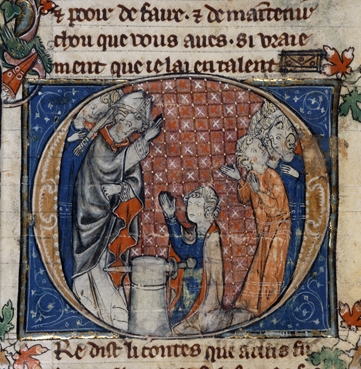 ⁊ pooir de faire . ⁊ de maintenir
chou que vous aues . si vraie
ment que ie lai en talent
Re dist li contes que